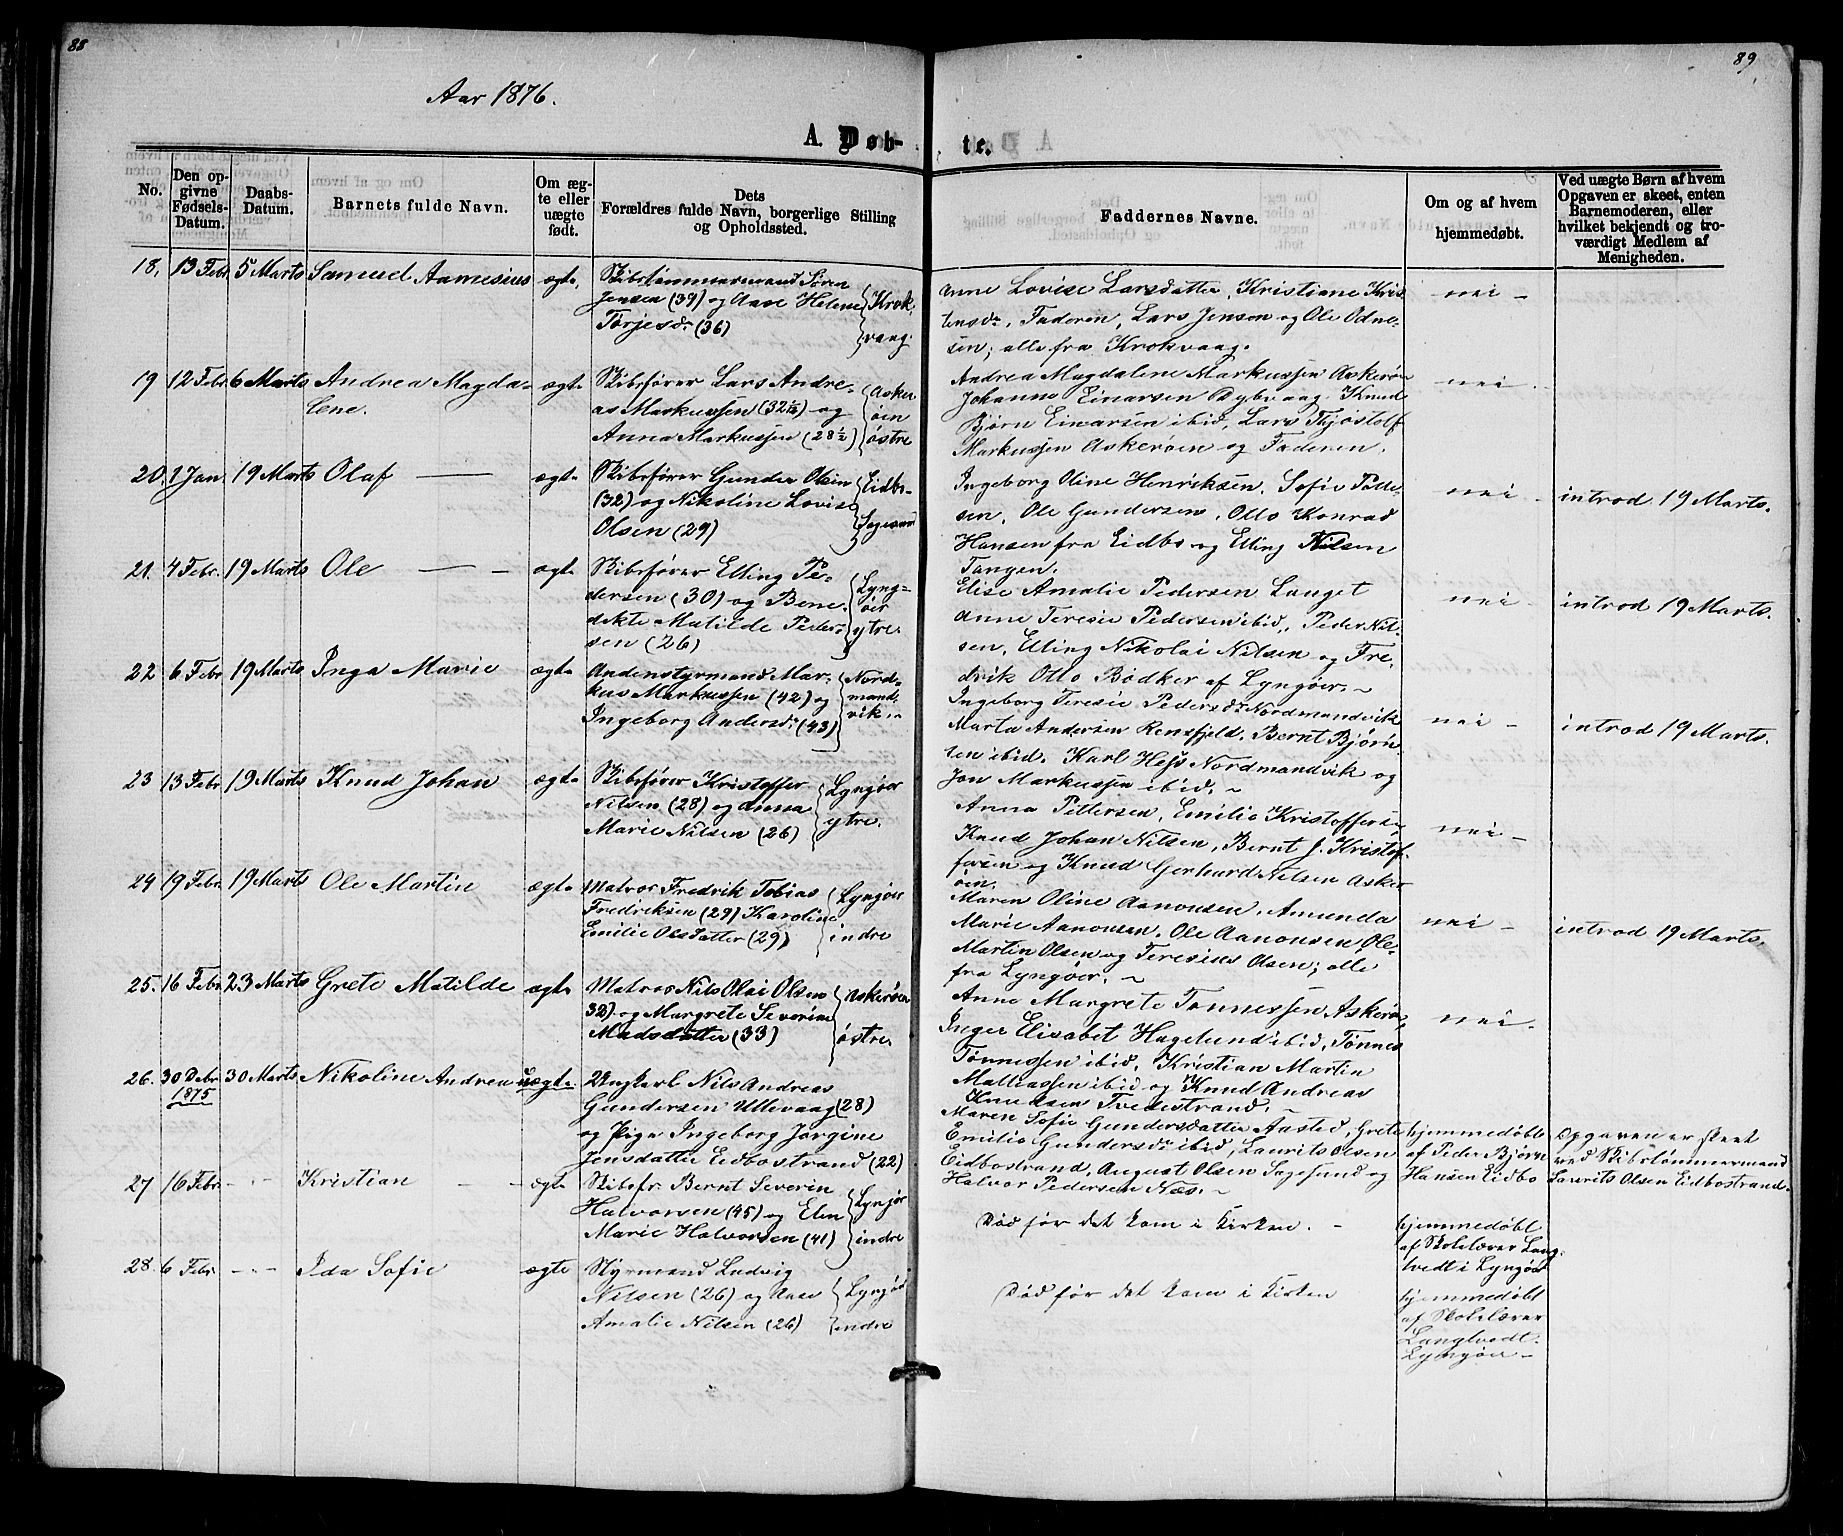 88
89
Aar 1876.
A. Døb-
te.
No.
Den op-
givne
Fødsels-
Datum.
Daabs-
Datum.
Barnets fulde Navn.
Om æg-
te eller
uægte
født.
Dets
Forældres fulde Navn, borgerlige Stilling
og Opholdssted.
Faddernes Navne.
Om og af hvem
hjemmedøbt.
Ved uægte Børn af hvem
Opgaven er skeet, enten
Barnemoderen, eller
hvilket bekjendt og tro-
værdigt Medlem af
Menigheden.
18. 13 Febr. 5 Marts Samuel Aamesius ægte,
Skibstømmermand Søren
Jensen (39) og Aase Helene
Torjesdr (36)
Krok-
vaag.
Anne Lovise Larsdatter, Kristiane Kris
tensdr, Faderen, Lars Jensen og Ole Odne-
sen; alle fra Krokvaag.
nei -
19 12 Febr 6 Marts Andrea Magda-
lene.
ægte
Skibsfører Lars Andre-
as Markussen (32½) og
Anna Markussen (28½)
Asker
øen
østre
Andrea Magdalene Markussen Askerøen
Johanne Einarsen Dybvaag. Knud
Bjørn Einarsen ibid, Lars Thjøstolf
Markussen Askerøen og Faderen.
nei -
20. 1 Jan 19 Marts Olaf — ægte
Skibsfører Gunder Olsen
(32) og Nikoline Lovise
Olsen (29)
Eidbo-
Sagesund
Ingeborg Oline Henriksen. Sofie Peder-
sen. Ole Gundersen, Otto Konrad
Hansen fra Eidbo og Elling Nilsen
Tangen.
nei -
introd 19 Marts.
21. 4 Febr. 19 Marts Ole — ægte
Skibsfører Elling Pe-
dersen (30) og Bene-
dikte Matilde Peder-
sen (26)
Lyng-
øer
ytre.
Elise Amalie Pedersen Langet
Anne Teresie Pedersen ibid, Peder Nil-
sen, Elling Nikolai Nilsen og Fre-
drik Otto Bødker af Lyngøer. ~
nei -
introd 19 Marts.
22 6 Febr 19 Marts Inga Marie ægte
Andenstyrmand Mar-
kus Markussen (42) og
Ingeborg Andersdr (43)
Nord-
mand-
vik.
Ingeborg Teresie Pedersdr Nordmandvik
Marta Andersen Rensfjeld. Bernt Bjørn
sen ibid. Karl Hess Nordmandvik og
Jon Markussen ibid. ~
nei -
introd 19 Marts.
23 13 Febr 19 Marts Knud Johan ægte
Skibsfører Kristoffer
Nilsen (28) og Anna
Marie Nilsen (26)
Lyngøer
ytre.
Anna Pettersen, Emilie Kristoffersen
Knud Johan Nilsen, Bernt J. Kristof-
fersen og Knud Gerhard Nilsen Asker
øen.
nei -
24 19 Febr. 19 Marts Ole Martin ægte
Matros Fredrik Tobias
Fredriksen (29) Karoline
Emilie Olsdatter (29)
Lyngøer
indre
Maren Oline Aanonsen. Amunda
Marie Aanonsen. Ole Aanonsen Ole-
Martin Olsen og Teresius Olsen; alle
fra Lyngøer. ~
nei -
introd 19 Marts.
25. 16 Febr. 23 Marts Grete Matilde ægte
Matros Nils Olai Olsen
32) og Margrete Severine
Madsdatter (33)
Askerøen
østre
Anne Margrete Tønnessen Askerøen
Inger Elisabet Hagelund ibid, Tønnes
Tønnessen ibid, Kristian Martin
Matiassen ibid og Knud Andreas
Knudsen Tvedestrand. ~
nei.
26. 30 Debr 30 Marts Nikoline Andrea uægte
1875
Ungkarl Nils Andreas
Gundersen Ullevaag (28)
og Pige Ingeborg Jørgine
Jensdatter Eidbostrand (22)
Maren Sofie Gundersdatter Aasted, Grete
Emilie Gundersdr ibid, Laurits Olsen
Eidbostrand, August Olsen Sagesund og
Halvor Pedersen Næs. ~
hjemmedøbt
af Peder Bjørn
Hansen Eidbo
Opgaven er skeet
ved Skibstømmermand
Laurits Olsen Eidbostrand.
27 16 Febr. - - Kristian - - ægte
Skibsfr. Bernt Severin
Halvorsen (45) og Elen
Marie Halvorsen (41)
Lyngør
indre
Død før det kom i Kirken. -
hjemmedøbt
af Skolelærer Lang-
tvedt i Lyngøer
28. 6 Febr. - - Ida Sofie ægte
Styrmand Ludvig
Nilsen (26) og Aase
Amalie Nilsen (26)
Lyngør
indre
Død før det kom i Kirken
hjemmedøbt
af Skolelærer
Langtvedt.
Lyngøer -